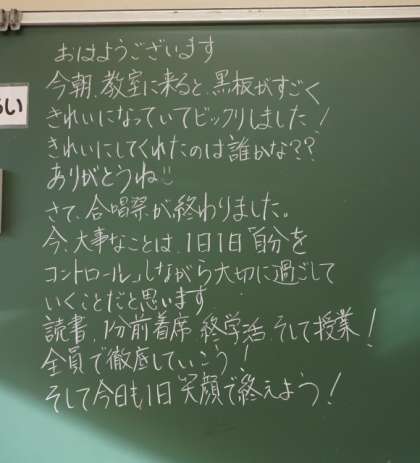 おはようございます
今朝、教室に来ると、黒板がすごく
きれいになっていてビックリしました!
きれいにしてくれたのは誰かな??
ありがとうね!!
さて、合唱祭が終わりました。
今、大事なことは、1日1日「自分を
コントロール」しながら大切に過ごして
いくことだと思います
読書、1分前着席、終学活、そして授業!
全員で徹底していこう!
そして今日も1日笑顔で終えよう!
い